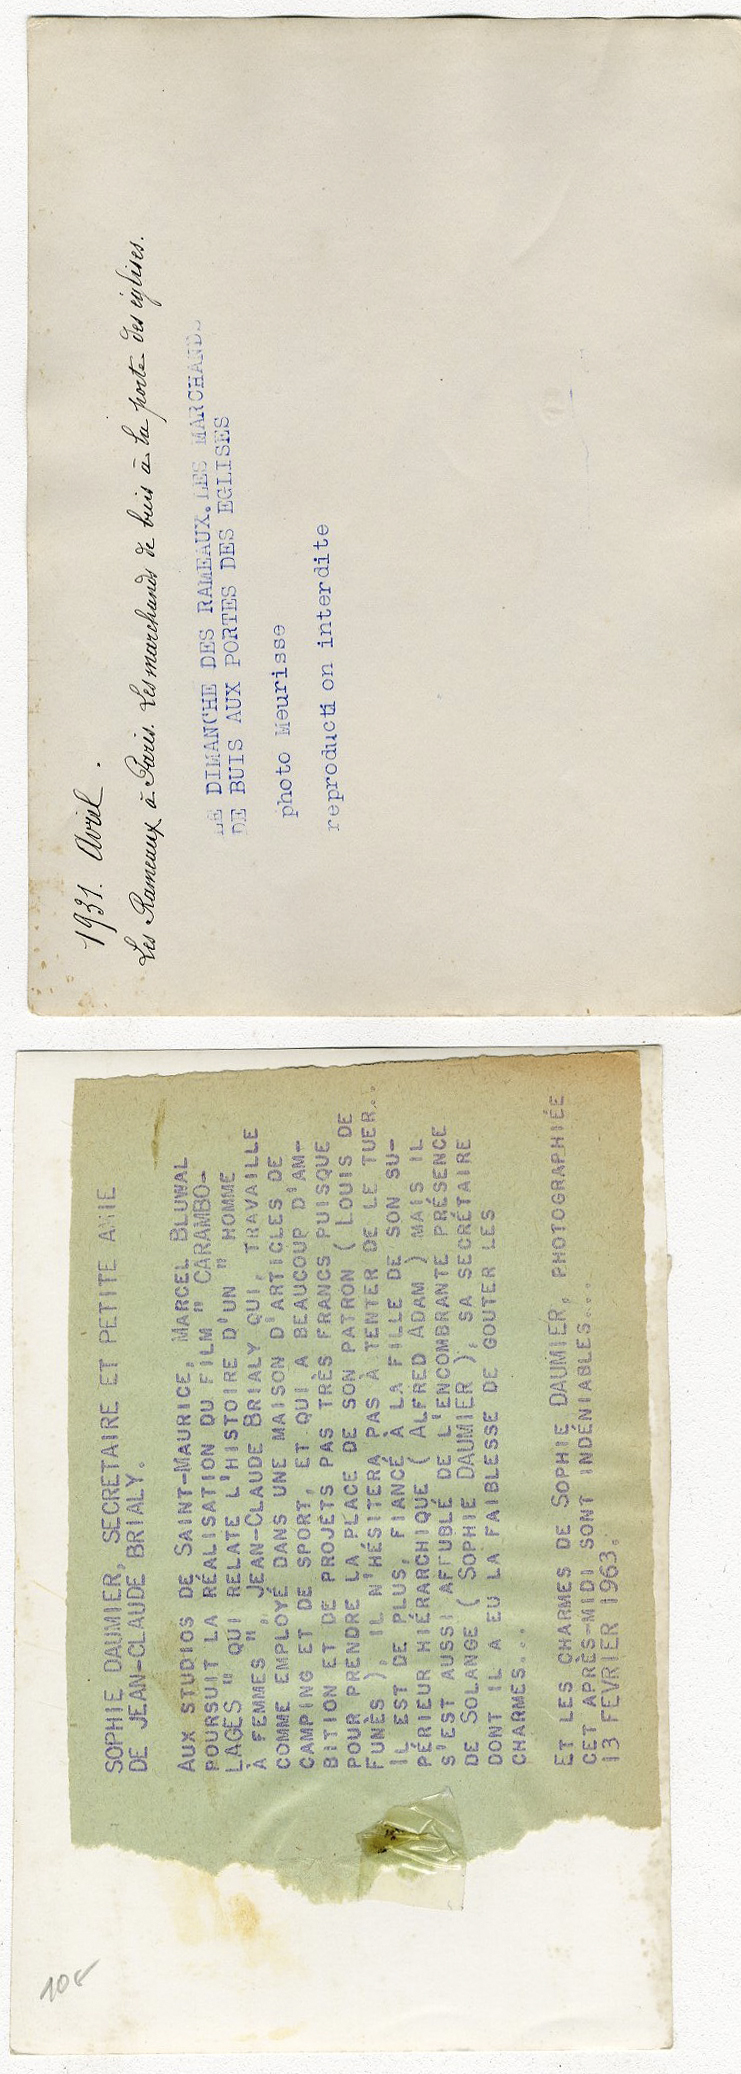 1931. Avril.
Les Rameaux à Paris. Les marchands de buis à la porte des églises.
LE DIMANCHE DES RAMEAUX. LES MARCHANDS
DE BUIS AUX PORTES DES EGLISES
photo Meurisse
reproduction interdite
SOPHIE DAUMIER, SECRETAIRE ET PETITE AMIE
DE JEAN-CLAUDE BRIALY.
AUX STUDIOS DE SAINT-MAURICE, MARCEL BLUWAL
POURSUIT LA RÉALISATION DU FILM " CARAMBO-
LAGES " QUI RELATE L'HISTOIRE D'UN " HOMME
À FEMMES ", JEAN-CLAUDE BRIALY QUI, TRAVAILLE
COMME EMPLOYÉ DANS UNE MAISON D'ARTICLES DE
CAMPING ET DE SPORT, ET QUI A BEAUCOUP D'AM-
BITION ET DE PROJETS PAS TRÈS FRANCS PUISQUE
POUR PRENDRE LA PLACE DE SON PATRON ( LOUIS DE
FUNÉS ), IL N'HÉSITERA PAS À TENTER DE LE TUER..
IL EST DE PLUS, FIANCÉ À LA FILLE DE SON SU-
PÉRIEUR HIÉRARCHIQUE ( ALFRED ADAM ) MAIS IL
S'EST AUSSI AFFUBLÉ DE L'ENCOMBRANTE PRÉSENCE
DE SOLANGE ( SOPHIE DAUMIER ), SA SECRÉTAIRE
DONT IL A EU LA FAIBLESSE DE GOUTER LES
CHARMES...
ET LES CHARMES DE SOPHIE DAUMIER, PHOTOGRAPHIÉE
CET APRÈS-MIDI SONT INDÉNIABLES....
13 FEVRIER 1963.